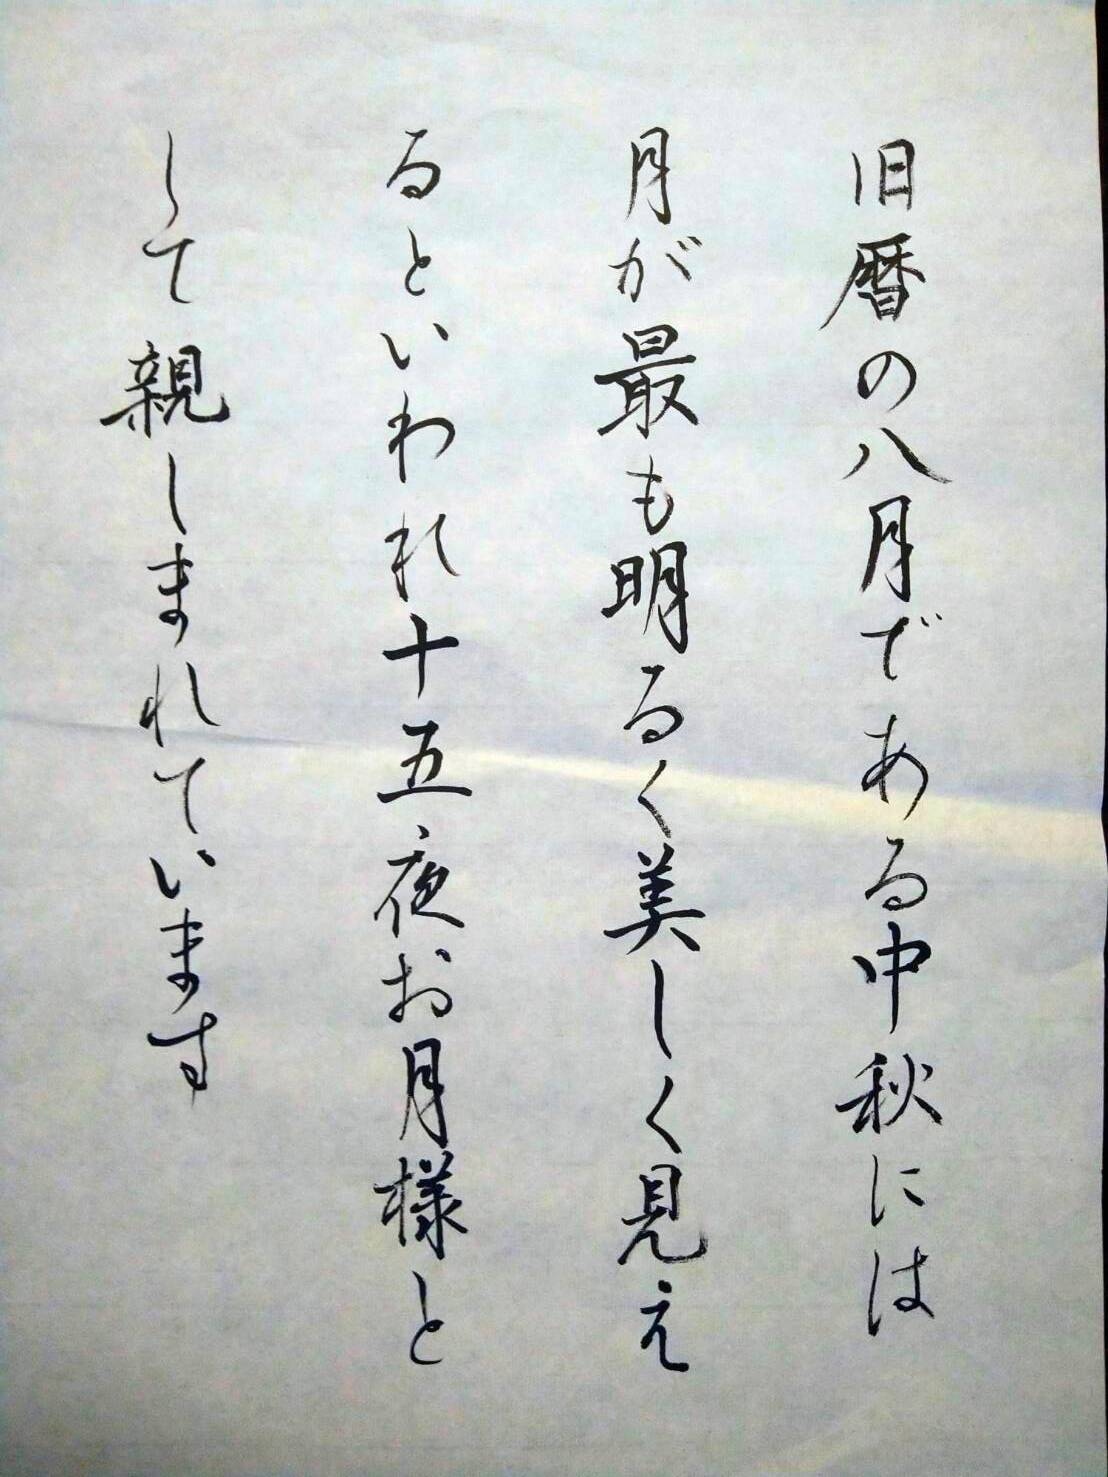 旧暦の八月である中秋には
月が最も明るく美しく見え
るといわれ十五夜お月様と
して親しまれています